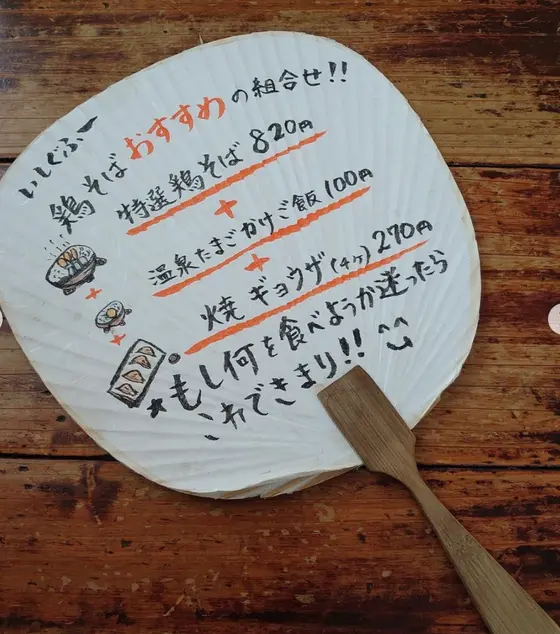 いしぐふー
鶏そばおすすめの組合せ!!
特選鶏そば 820円
+
温泉たまごかけご飯 100円
+
焼ギョウザ(4ヶ) 270円
もし何を食べようか迷ったら
いかできまり!!